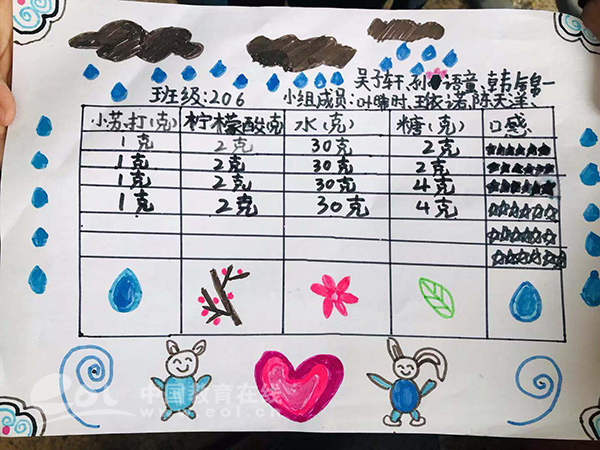 吴子轩、孙语童、韩锦一
班级:206 小组成员:叶晴时、王依诺、陈天泽、
小苏打(克) 柠檬酸(克) 水(克) 糖(克) 口感
1克 2克 30克 2克
1克 2克 30克 2克
1克 2克 30克 4克
1克 2克 30克 4克
中国教育在线
www.eol.cn